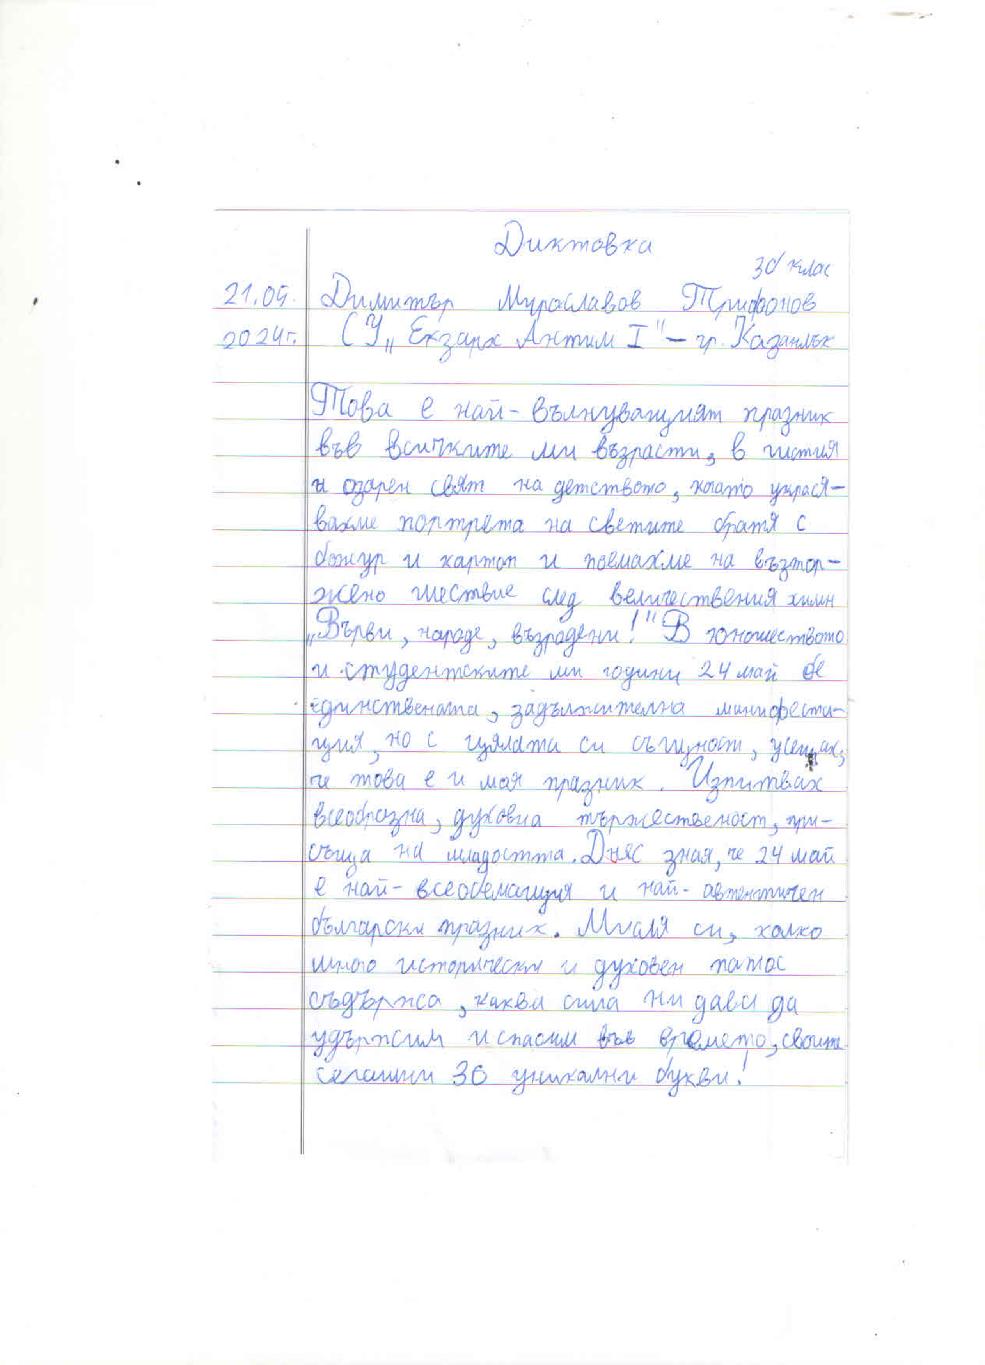 Диктовка
3б клас
21.05. Димитър Мирославов Трифонов
2024г. СУ „Екзарх Антим I" – гр. Казанлък
Това е най-вълнуващият празник
във всичките ми възрасти, в чистия
и озарен свят на детството, когато украся-
вахме портрета на светите братя с
божур и хартоп и поемахме на възтор-
жено шествие след величествения химн
„Върви, народе, възродени!" В юношеството
и студентските ми години 24 май бе
единствената, задължителна манифеста-
ция, но с цялата си същност, усещах,
че това е и мая празник. Изпитвах
всеобразна, духовна тържественост, при-
съща на младостта. Днес зная, че 24 май
е най-всеобемащия и най-автентичен
български празник. Мисля си, колко
много исторически и духовен патос
съдържа, каква сила ни дава да
удържим и спасим във времето, своите
сегашни 30 уникални букви!